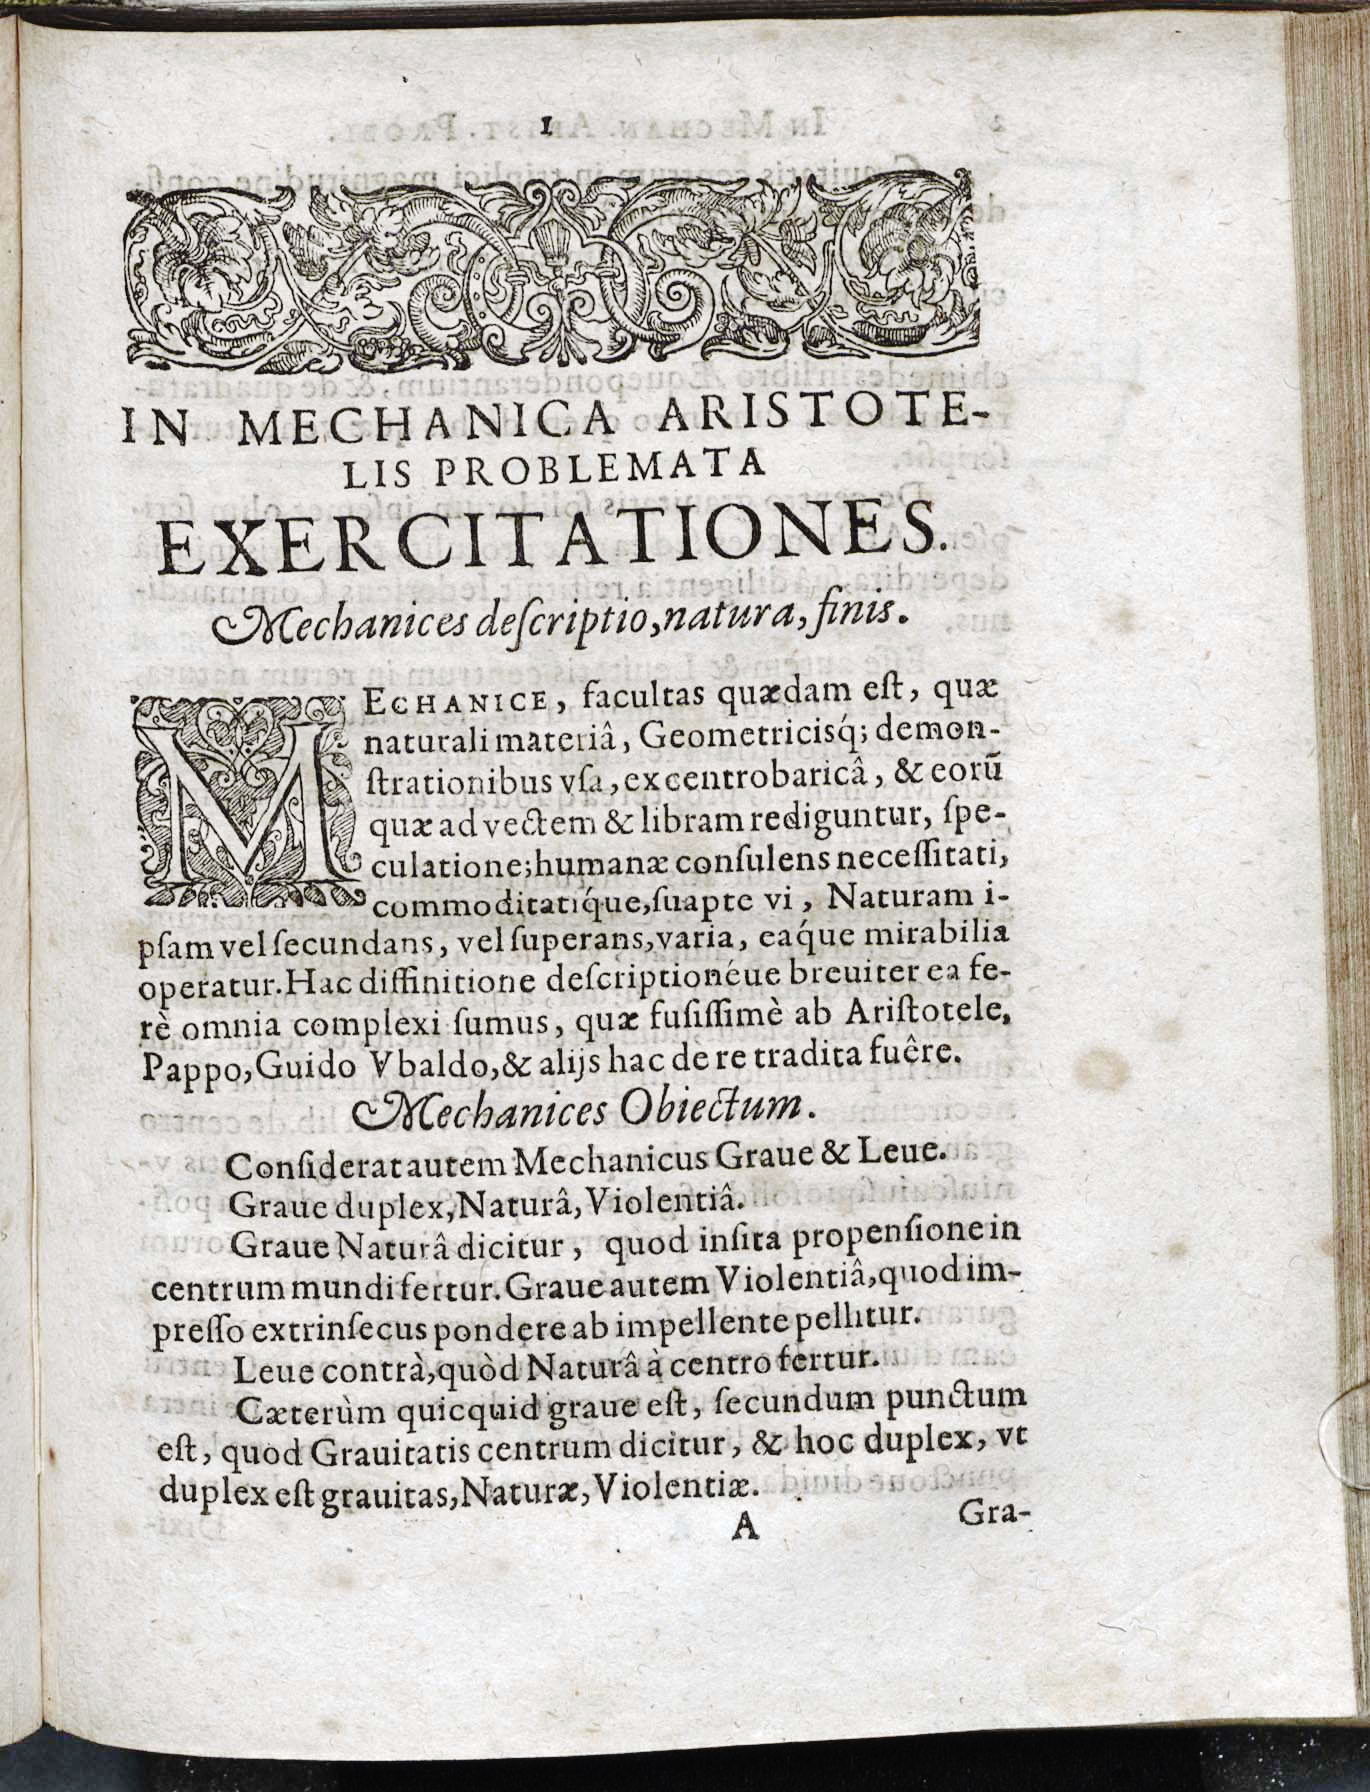 1
IN MECHANICA ARISTOTE-
LIS PROBLEMATA
EXERCITATIONES.
Mechanices deſcriptio, natura, finis.
MECHANICE, facultas quædam eſt, quæ
naturali materiâ, Geometricisq́; demon-
ſtrationibus vſa, ex centrobaricâ, & eorũ
quæ ad vectem & libram rediguntur, ſpe-
culatione; humanæ conſulens neceſſitati,
commoditatiq́ue, ſuapte vi, Naturam i-
pſam vel ſecundans, vel ſuperans, varia, eaq́ue mirabilia
operatur. Hac diffinitione deſcriptionéue breuiter ea fe-
rè omnia complexi ſumus, quæ fuſiſſimè ab Ariſtotele,
Pappo, Guido Vbaldo, & alijs hac de re tradita fuêre.
Mechanices Obiectum.
Conſiderat autem Mechanicus Graue & Leue.
Graue duplex, Naturâ, Violentiâ.
Graue Naturâ dicitur, quod inſita propenſione in
centrum mundi fertur. Graue autem Violentiâ, quod im-
preſſo extrinſecus pondere ab impellente pellitur.
Leue contrà, quòd Naturâ à centro fertur.
Cæterùm quicquid graue eſt, ſecundum punctum
eſt, quod Grauitatis centrum dicitur, & hoc duplex, vt
duplex eſt grauitas, Naturæ, Violentiæ.
A Gra-